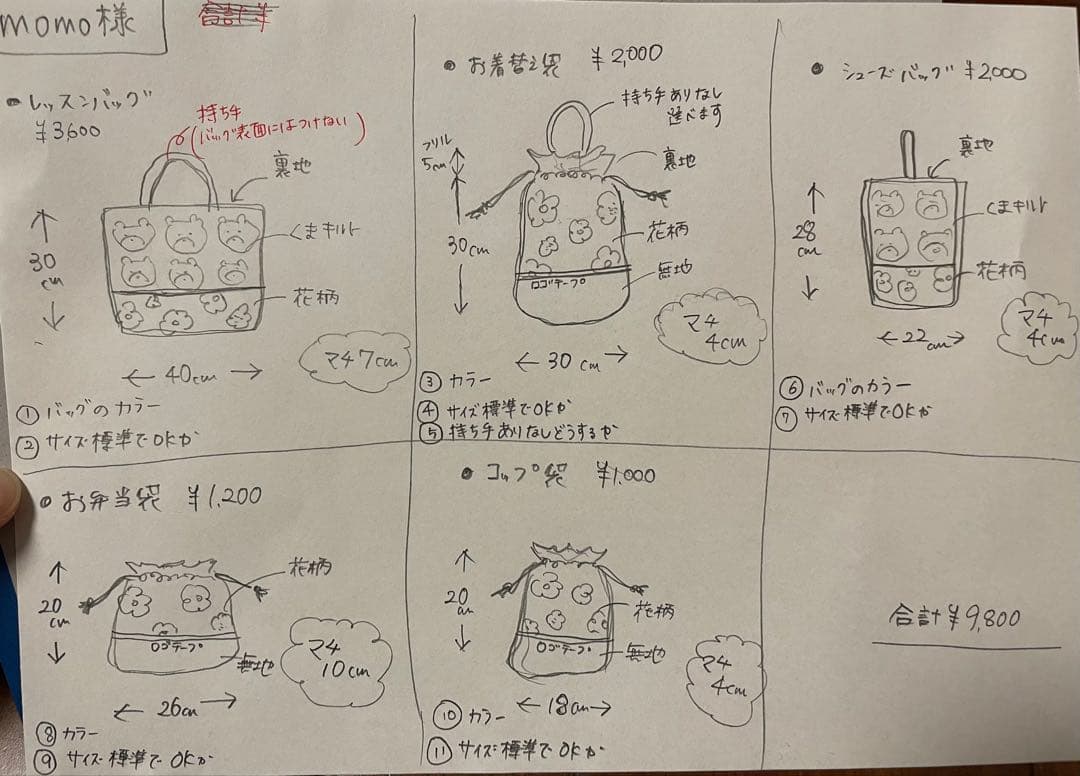 momo様
合計¥
・レッスンバッグ
¥3,600
持ち手
(バッグ表面にはつけない)
裏地
くまキルト
花柄
30
cm
40cm
マチ7cm
① バッグのカラー
② サイズ標準でOKか
・お着替え袋 ¥2,000
持ち手ありなし
選べます
フリル
5cm
裏地
30cm
花柄
無地
ロゴテープ
30cm
マチ
4cm
③ カラー
④ サイズ標準でOKか
⑤ 持ち手ありなしどうするか
・シューズバッグ ¥2,000
裏地
くまキルト
28
cm
花柄
22cm
マチ
4cm
⑥ バッグのカラー
⑦ サイズ標準でOKか
・お弁当袋 ¥1,200
花柄
20
cm
ロゴテープ
無地
マチ
10cm
26cm
⑧ カラー
⑨ サイズ標準でOKか
・コップ袋 ¥1,000
20
cm
花柄
ロゴテープ
無地
マチ
4cm
18cm
⑩ カラー
⑪ サイズ標準でOKか
合計¥9,800